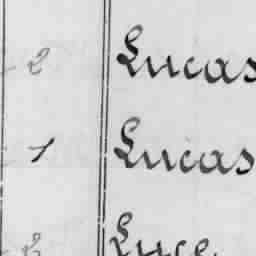 2 Lucas
1 Lucas
2 Luce